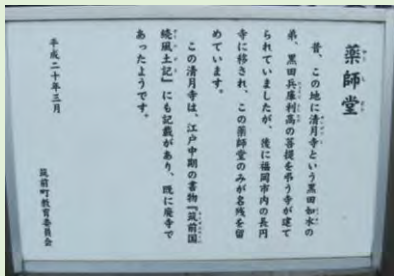 薬師堂
昔、この地に清月寺という黒田如水の
弟、黒田兵庫利高の菩提を弔う寺が建て
られていましたが、後に福岡市内の長円
寺に移され、この薬師堂のみが名残を留
めています。
この清月寺は、江戸中期の書物『筑前国
続風土記』にも記載があり、既に廃寺で
あったようです。
平成二十年三月
筑前町教育委員会